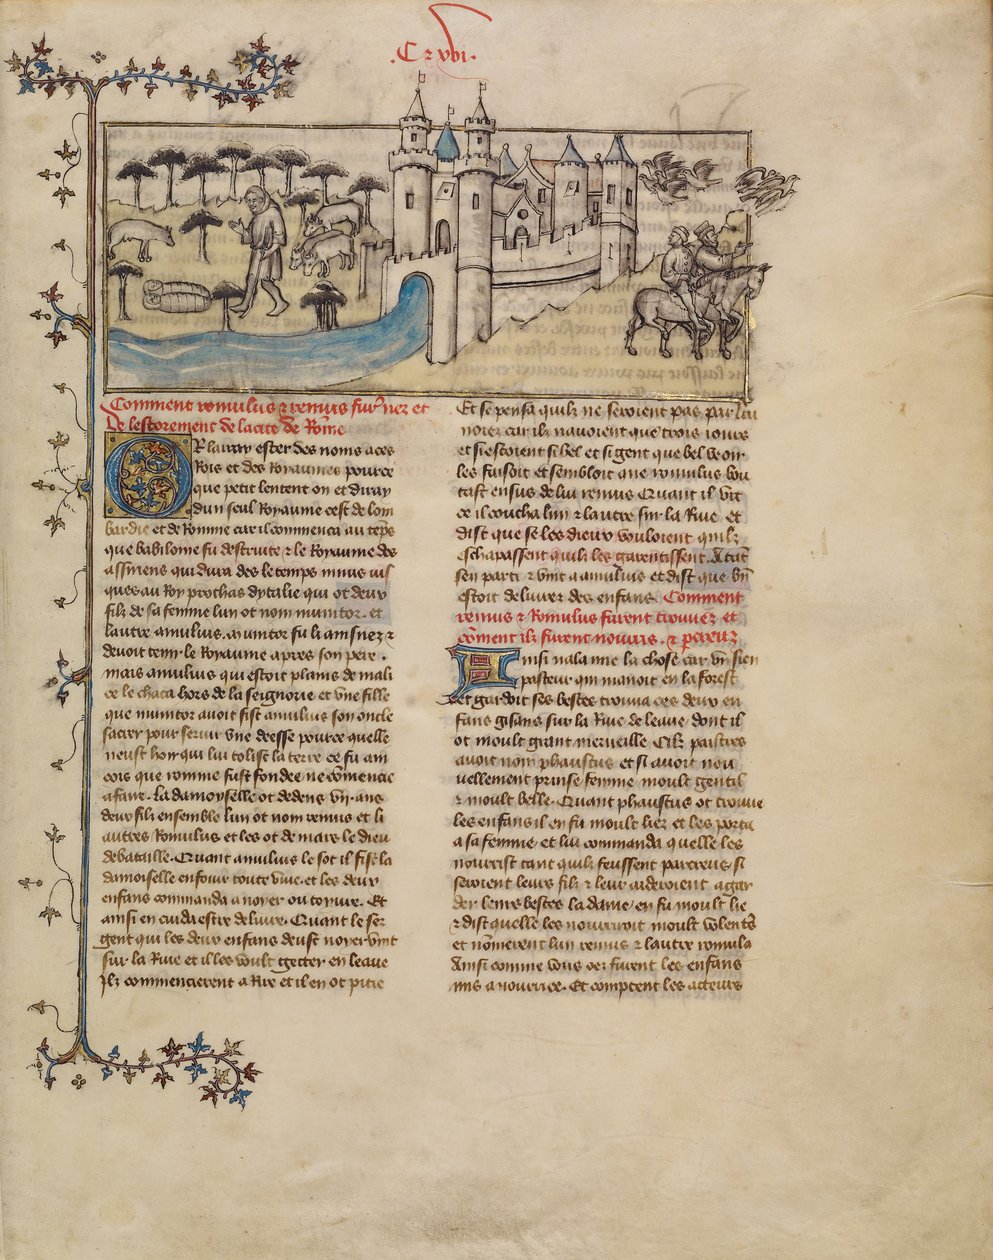 .C & xvi.
Comment romulus & remus furent nez et
De lestorement de la cite de Rome
OR lairay ester des noms a ces
Rois et des Royaumes pource
que petit lentent on et diray
dun seul Royaume cest de lom
bardie et de Romme car il commenca au temps
que babiloine fu destruite & le Royaume des
assiriens qui dura des le temps ninus ius
ques au Roy prochas dytalie qui ot deux
filz de sa femme lun ot nom numitor. et
lautre amulius. numitor fu li ainsnez &
devoit tenir le Royaume apres son pere.
mais amulius qui estoit plains de mali
ce le chaca hors de la seignorie et une fille
que numitor avoit fist amulius son oncle
sacrer pour servir une deesse pource quelle
neust hoir qui lui tolist la terre ce fu ain
cois que romme fust fondee ne commencie
a faire. La damoyselle ot dedens un an
deux filz ensemble lun ot nom remus et li
autres Romulus et les ot de mars le dieu
de bataille. Quant amulius le sot il fist la
damoiselle enfouir toute vive. et les deux
enfans commanda a noyer ou
ainsi en cuida estre delivre. Quant le ser
gent qui les deux enfans deust noyer vint
sur la Rive et il les voult gecter en leaue
Ilz commencierent a Rire et il en ot pitie
Et se pensa quilz ne seroient pas par lui
noiez car ilz navoient que trois iours
et si estoient si bel et si gent que bel veoir
les faisoit et sembloit que romulus bou
tast ensus de lui remus Quant il vit
ce il coucha lun & lautre sur la Rive et
dist que se les dieux vouloient quilz
eschapassent quilz les garentissent. Atant
sen parti & vint a amulius et dist que bien
estoit delivrez des enfans. Comment
remus & Romulus furent trouvez et
comment ilz furent nouris. &
Einsi nala mie la chose car un sien
pasteur qui manoit en la forest
et gardoit ses bestes trouva ces deux en
fans gisans sur la Rive de leaue dont il
ot moult grant merveille Cilz paistres
avoit nom phaustus et si avoit nou
vellement prinse femme moult gentil
& moult belle. Quant phaustus ot trouve
les enfans il en fu moult liez et les porta
a sa femme et lui commanda quelle les
nourrist tant quilz feussent parcreus si
seroient leurs filz & leur aideroient a gar
der leurs bestes la dame en fu moult lie
& dist quelle les nourriroit moult volentiers
et nommerent lun remus & lautre romulus
Ainsi comme vous oez furent les enfans
mis a nourrice. Et comptent les acteurs